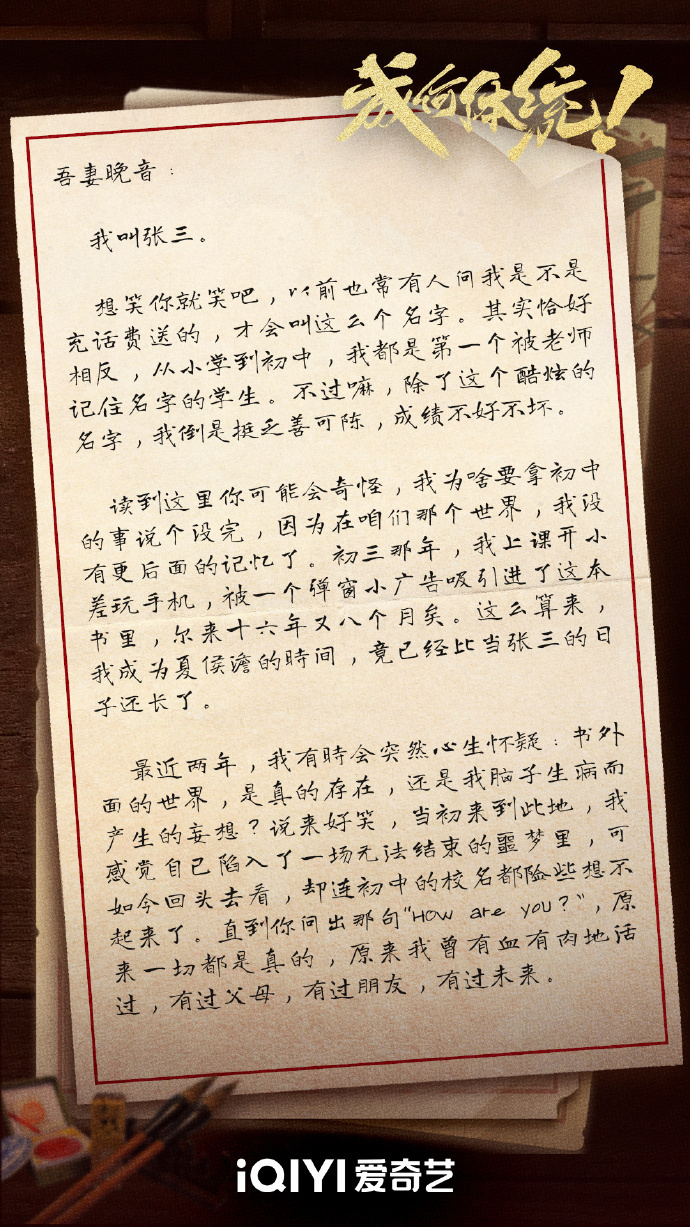 成何体统！
吾妻晚音：
我叫张三。
想笑你就笑吧，以前也常有人问我是不是
充话费送的，才会叫这么个名字。其实恰好
相反，从小学到初中，我都是第一个被老师
记住名字的学生。不过嘛，除了这个酷炫的
名字，我倒是挺乏善可陈，成绩不好不坏。
读到这里你可能会奇怪，我为啥要拿初中
的事说个没完，因为在咱们那个世界，我没
有更后面的记忆了。初三那年，我上课开小
差玩手机，被一个弹窗小广告吸引进了这本
书里，尔来十六年又八个月矣。这么算来，
我成为夏侯澹的時间，竟已经比当张三的日
子还长了。
最近两年，我有時会突然心生怀疑：书外
面的世界，是真的存在，还是我脑子生病而
产生的妄想？说来好笑，当初来到此地，我
感觉自己陷入了一场无法结束的噩梦里，可
如今回头去看，却连初中的校名都险些想不
起来了。直到你问出那句“How are you？”，原
来一切都是真的，原来我曾有血有肉地活
过，有过父母，有过朋友，有过未来。
iQIYI 爱奇艺